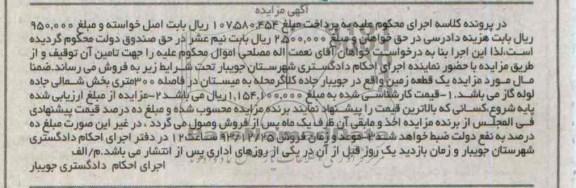 آگهی مزایده
در پرونده کلاسه اجرای محکوم علیه به پرداخت مبلغ ۱۰۷۵۸۰۴۵۴ ریال بابت اصل خواسته و مبلغ ۹۵۰,۰۰۰
ریال بابت هزینه دادرسی در حق خواهان و مبلغ ۲۵۰۰,۰۰۰ ریال بابت نیم عشر در حق صندوق دولت محکوم گردیده
است.لذا این اجرا بنا به درخواست خواهان آقای نعمت اله مصلحی اموال محکوم علیه را جهت تامین آن توقیف و از
طریق مزایده با حضور نماینده اجرای احکام دادگستری شهرستان جویبار تحت شرایط زیر به فروش می رساند.ضمنا
مال مورد مزایده یک قطعه زمین واقع در جویبار جاده کلاگرمحله به میستان در فاصله ۳۰۰متری بخش شمالی جاده
لوله گاز می باشد.۱-قیمت کارشناسی شده به مبلغ ۱,۱۵۴,۱۰۰,۰۰۰ ریال می باشد۲-مزایده از مبلغ ارزیابی شده
پایه شروع.کسانی که بالاترین قیمت را پیشنهاد نمایند برنده مزایده محسوب شده و مبلغ ده درصد قیمت پیشنهادی
فی المجلس از برنده مزایده اخذ و مابقی آن ظرف یک ماه پس از فروش وصول می گردد . در غیر این صورت مبلغ ده
درصد به نفع دولت ضبط خواهد شد.۳-موعد و زمان فروش ۹۳/۱۲/۲۵ ساعت۱۲ در دفتر اجرای احکام دادگستری
شهرستان جویبار و زمان بازدید یک روز قبل از آن در یکی از روزهای اداری پس از انتشار می باشد.م/الف
اجرای احکام دادگستری جویبار